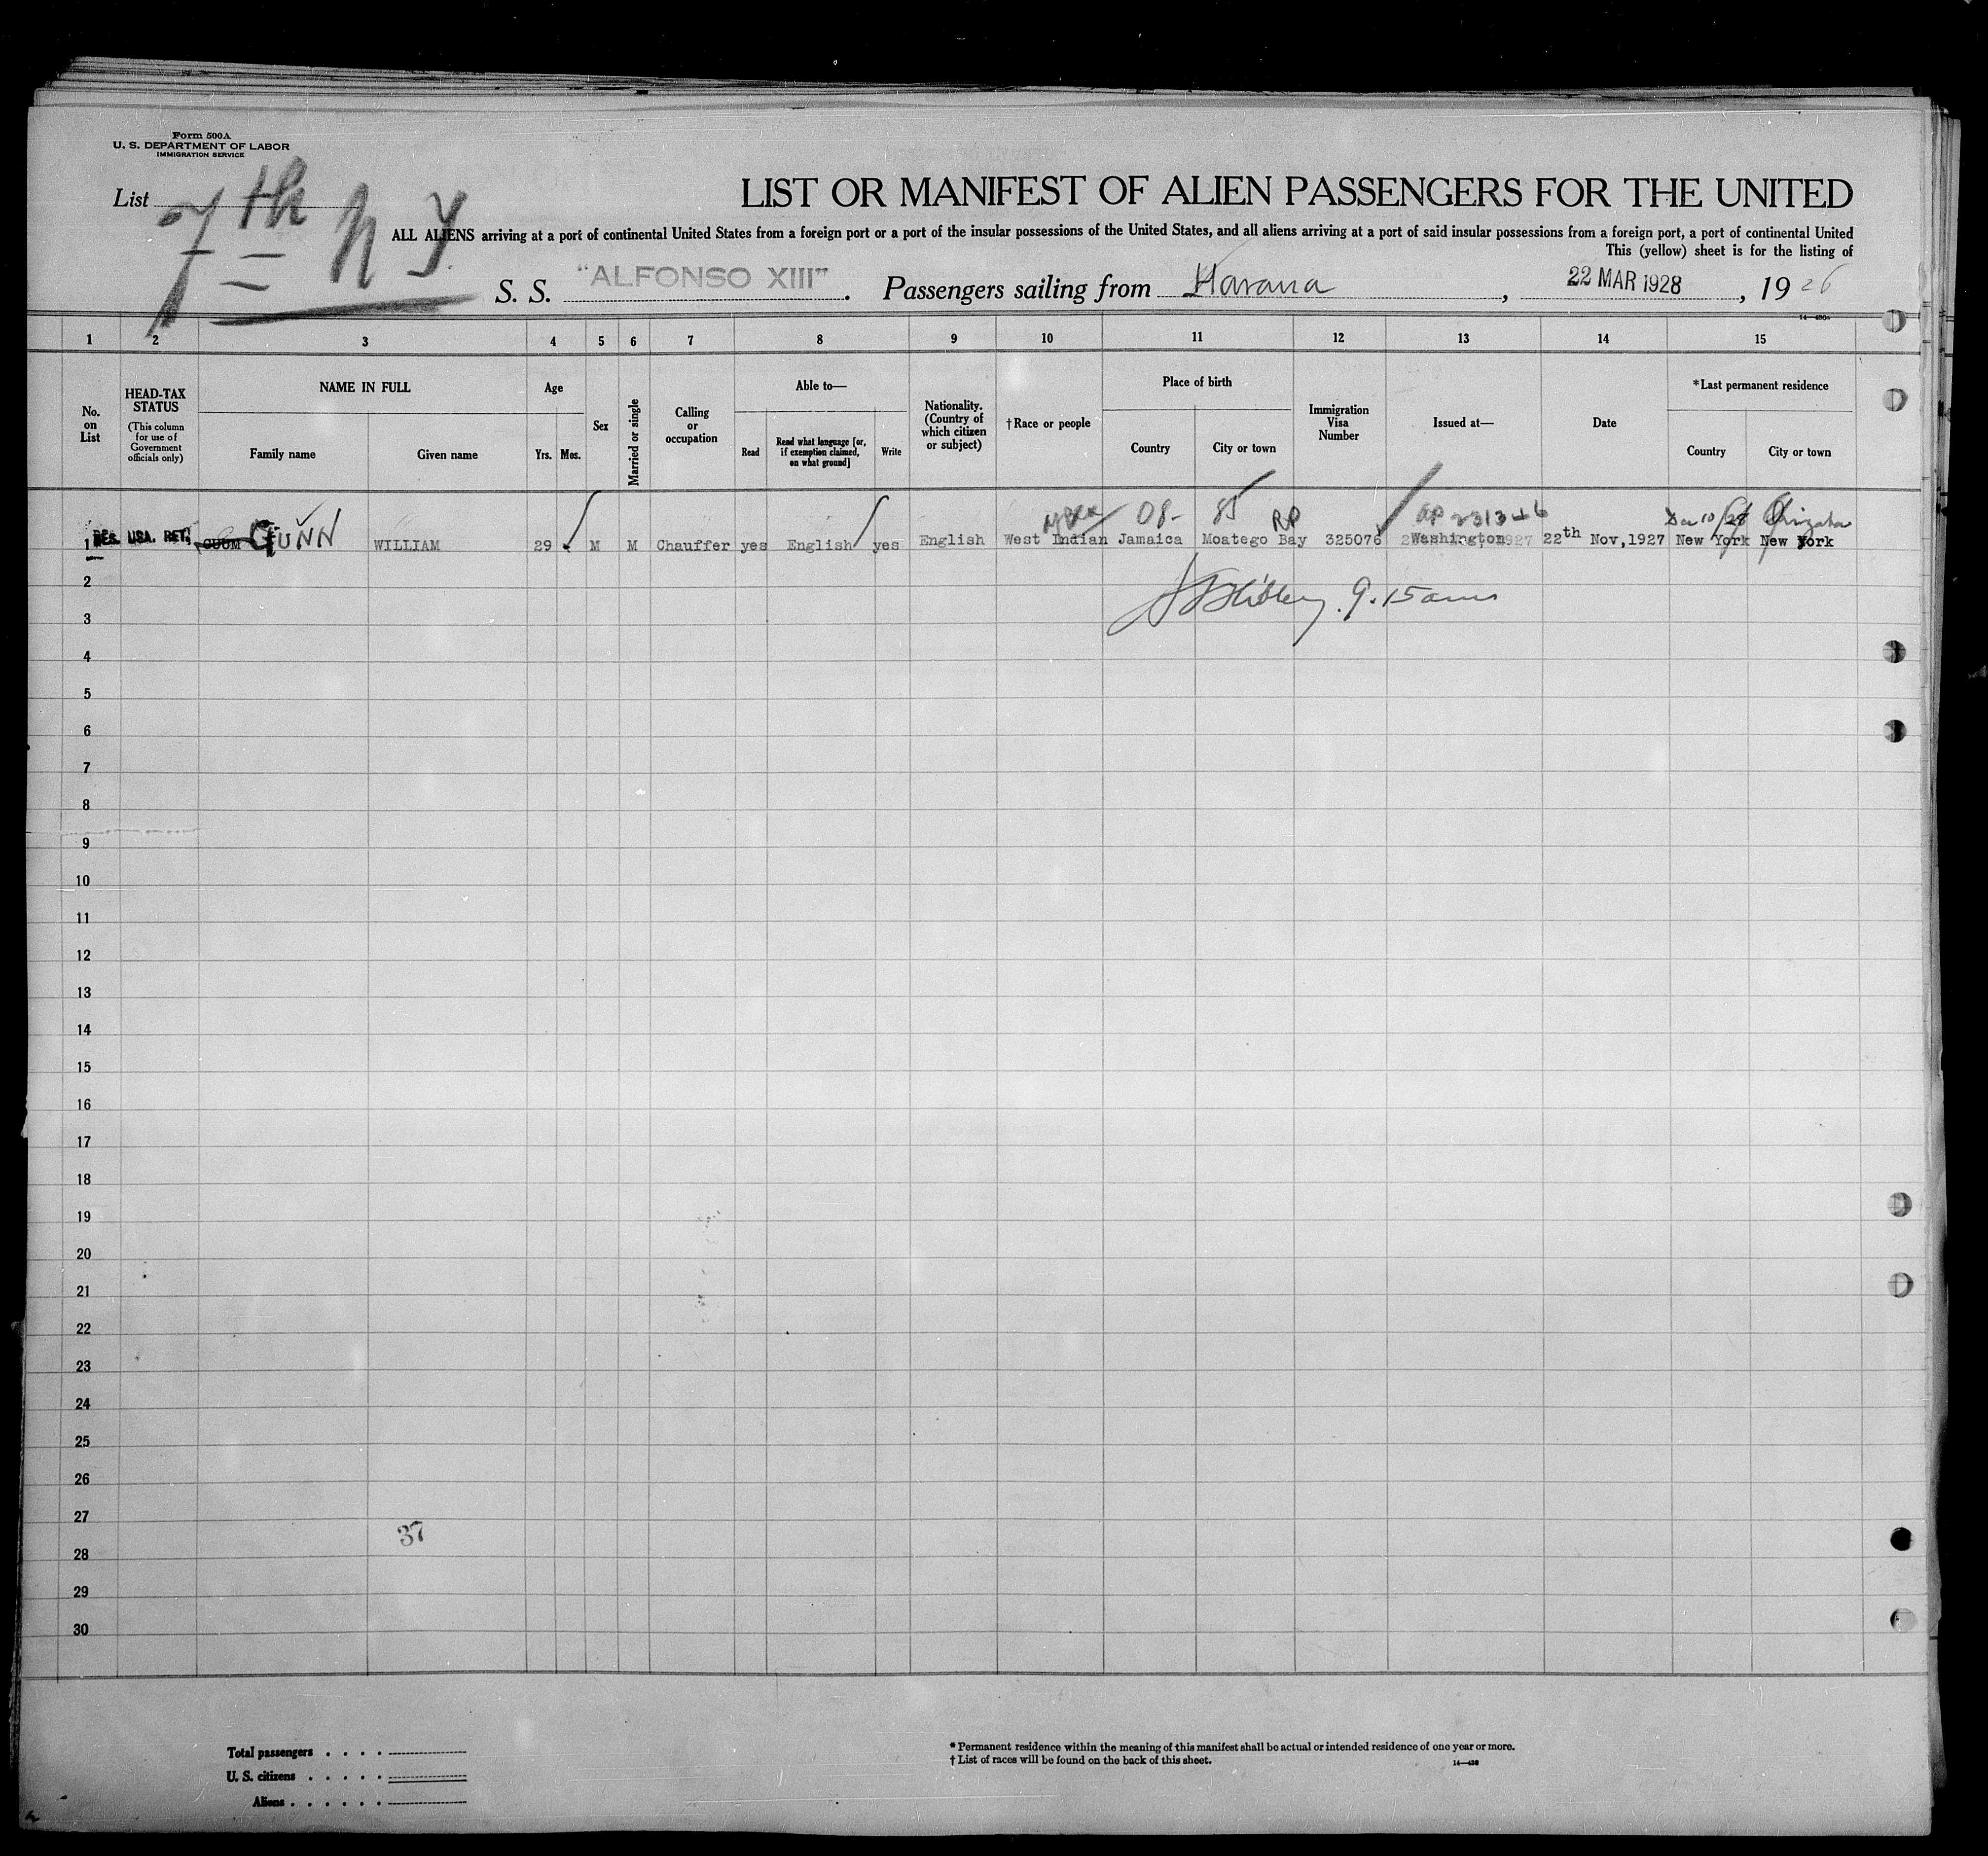 Form 500A
U. S. DEPARTMENT OF LABOR
IMMIGRATION SERVICE
List
7th N Y.
LIST OR MANIFEST OF ALIEN PASSENGERS FOR THE UNITED
ALL ALIENS arriving at a port of continental United States from a foreign port or a port of the insular possessions of the United States, and all aliens arriving at a port of said insular possessions from a foreign port, a port of continental United
This (yellow) sheet is for the listing of
S. S. "ALFONSO XIII". Passengers sailing from Havana, 22 MAR 1928, 19
1 2 3 4 5 6 7 8 9 10 11 12 13 14 15
No. on List
HEAD-TAX STATUS
(This column for use of Government officials only)
NAME IN FULL
Family name Given name
Age
Yrs. Mos.
Sex
Married or single
Calling or occupation
Able to—
Read Read what language [or, if exemption claimed, on what ground] Write
Nationality. (Country of which citizen or subject)
†Race or people
Place of birth
Country City or town
Immigration Visa Number
Issued at—
Date
*Last permanent residence
Country City or town
08- 85 RP
1 RES. USA. RET. GUNN WILLIAM 29 M M Chauffer yes English yes English West Indian Jamaica Moatego Bay 325076 Washington 22th Nov,1927 New York New York
9.15 am
2
3
4
5
6
7
8
9
10
11
12
13
14
15
16
17
18
19
20
21
22
23
24
25
26
27
37
28
29
30
Total passengers . . . .
U. S. citizens . . . . .
Aliens . . . . . .
* Permanent residence within the meaning of this manifest shall be actual or intended residence of one year or more.
† List of races will be found on the back of this sheet.